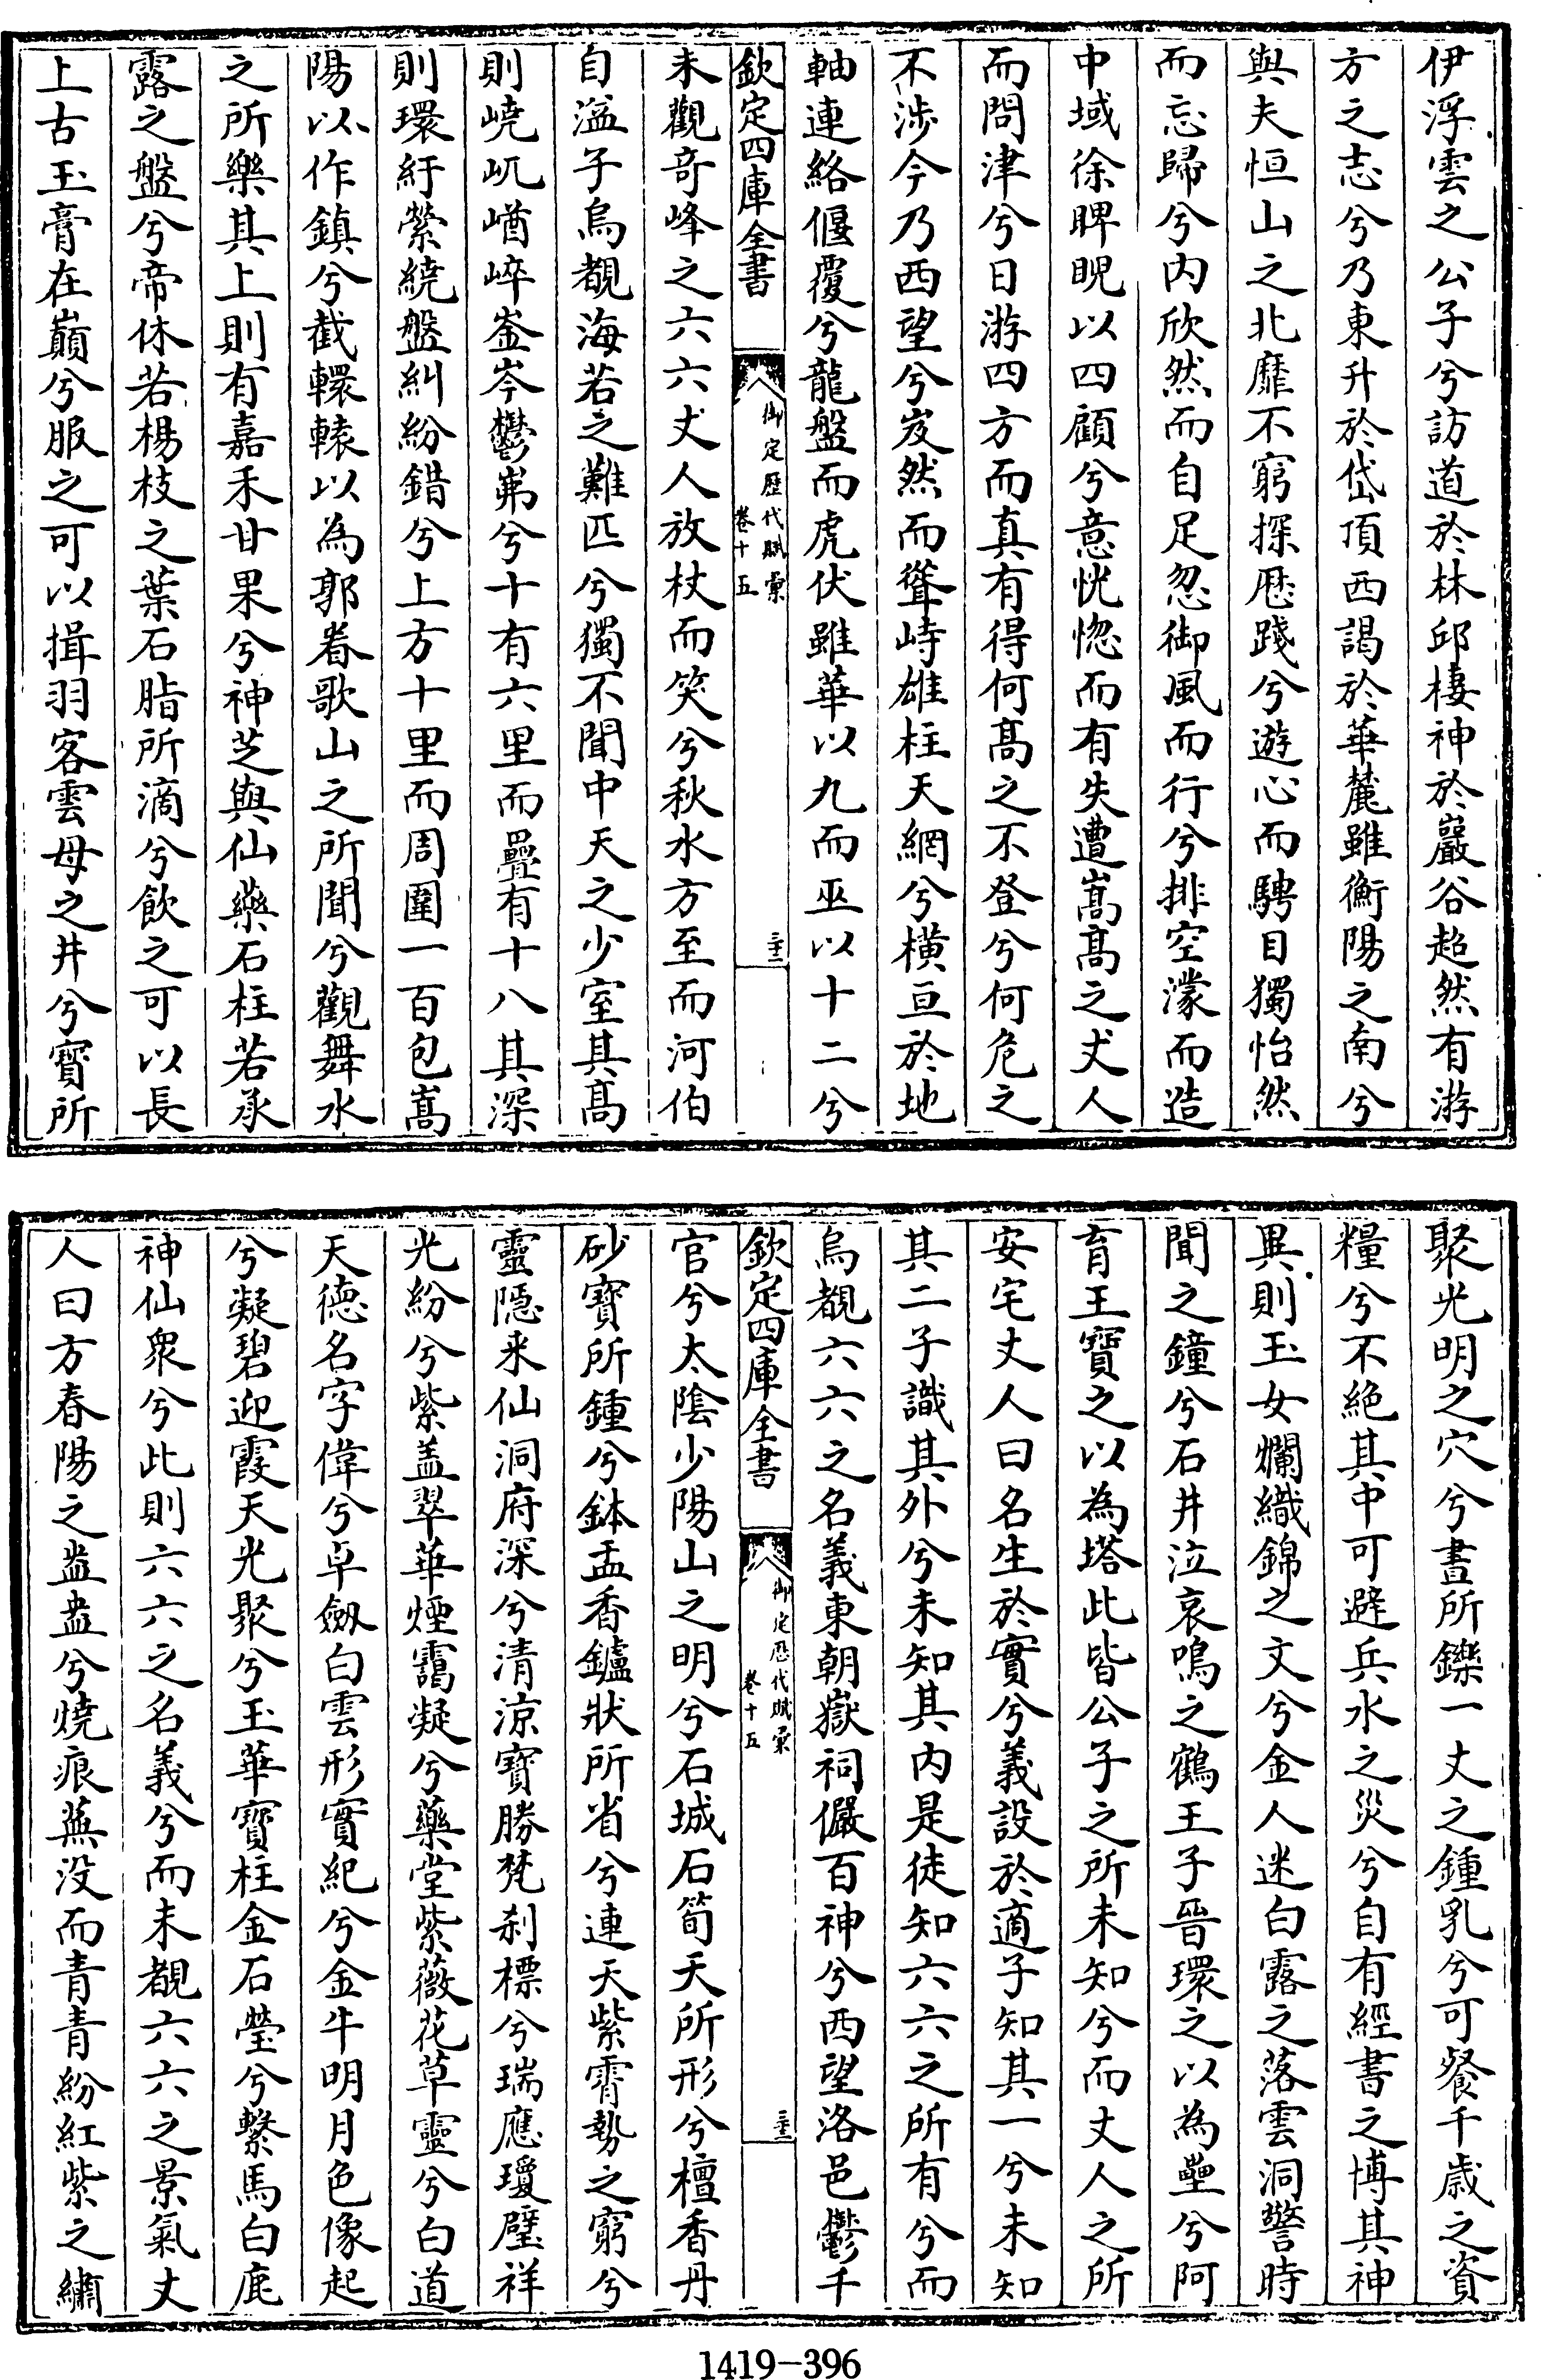 伊浮雲之公子兮訪道於林邱棲神於巖谷超然有游
方之志兮乃東升於岱頂西謁於華麓雖衡陽之南兮
與夫恒山之北靡不窮探歴踐兮遊心而騁目獨怡然
而忘歸兮内欣然而自足忽御風而行兮排空濛而造
中域徐睥睨以四顧兮意恍惚而有失遭嵩髙之丈人
而問津兮日游四方而真有得何髙之不登兮何危之
不渉今乃西望兮岌然而聳峙雄柱天網兮横亘於地
軸連絡偃覆兮龍盤而虎伏雖華以九而巫以十二兮
欽定四庫全書
御定歴代賦彚
卷十五
三十二
未觀竒峰之六六丈人放杖而笑兮秋水方至而河伯
自溢子烏覩海若之難匹兮獨不聞中天之少室其髙
則嶢屼崷崒崟岑鬱岪兮十有六里而疊有十八其深
則環紆縈繞盤糾紛錯兮上方十里而周圍一百包嵩
陽以作鎮兮截轘轅以為郭眷歌山之所聞兮觀舞水
之所樂其上則有嘉禾甘果兮神芝與仙藥石柱若承
露之盤兮帝休若楊枝之葉石脂所滴兮飲之可以長
上古玉膏在巔兮服之可以揖羽客雲母之井兮寳所
聚光明之穴兮晝所鑠一丈之鍾乳兮可餐千歳之資
糧兮不絶其中可避兵水之災兮自有經書之博其神
異則玉女爛織錦之文兮金人迷白露之落雲洞警時
聞之鐘兮石井泣哀鳴之鶴王子晉環之以為壘兮阿
育王寳之以為塔此皆公子之所未知兮而丈人之所
安宅丈人曰名生於實兮義設於適子知其一兮未知
其二子識其外兮未知其内是徒知六六之所有兮而
烏覩六六之名義東朝嶽祠儼百神兮西望洛邑鬱千
欽定四庫全書
御定歴代賦彚
卷十五
三十三
官兮太陰少陽山之明兮石城石筍天所形兮檀香丹
砂寳所鍾兮鉢盂香鑪狀所省兮連天紫霄勢之窮兮
靈隠来仙洞府深兮清涼寳勝梵刹標兮瑞應瓊璧祥
光紛兮紫盖翠華煙靄凝兮藥堂紫薇花草靈兮白道
天徳名字偉兮卓劔白雲形實紀兮金牛明月色像起
兮凝碧迎霞天光聚兮玉華寳柱金石瑩兮繫馬白鹿
神仙衆兮此則六六之名義兮而未覩六六之景氣丈
人曰方春陽之盎盎兮燒痕蕪没而青青紛紅紫之繡
1419-396